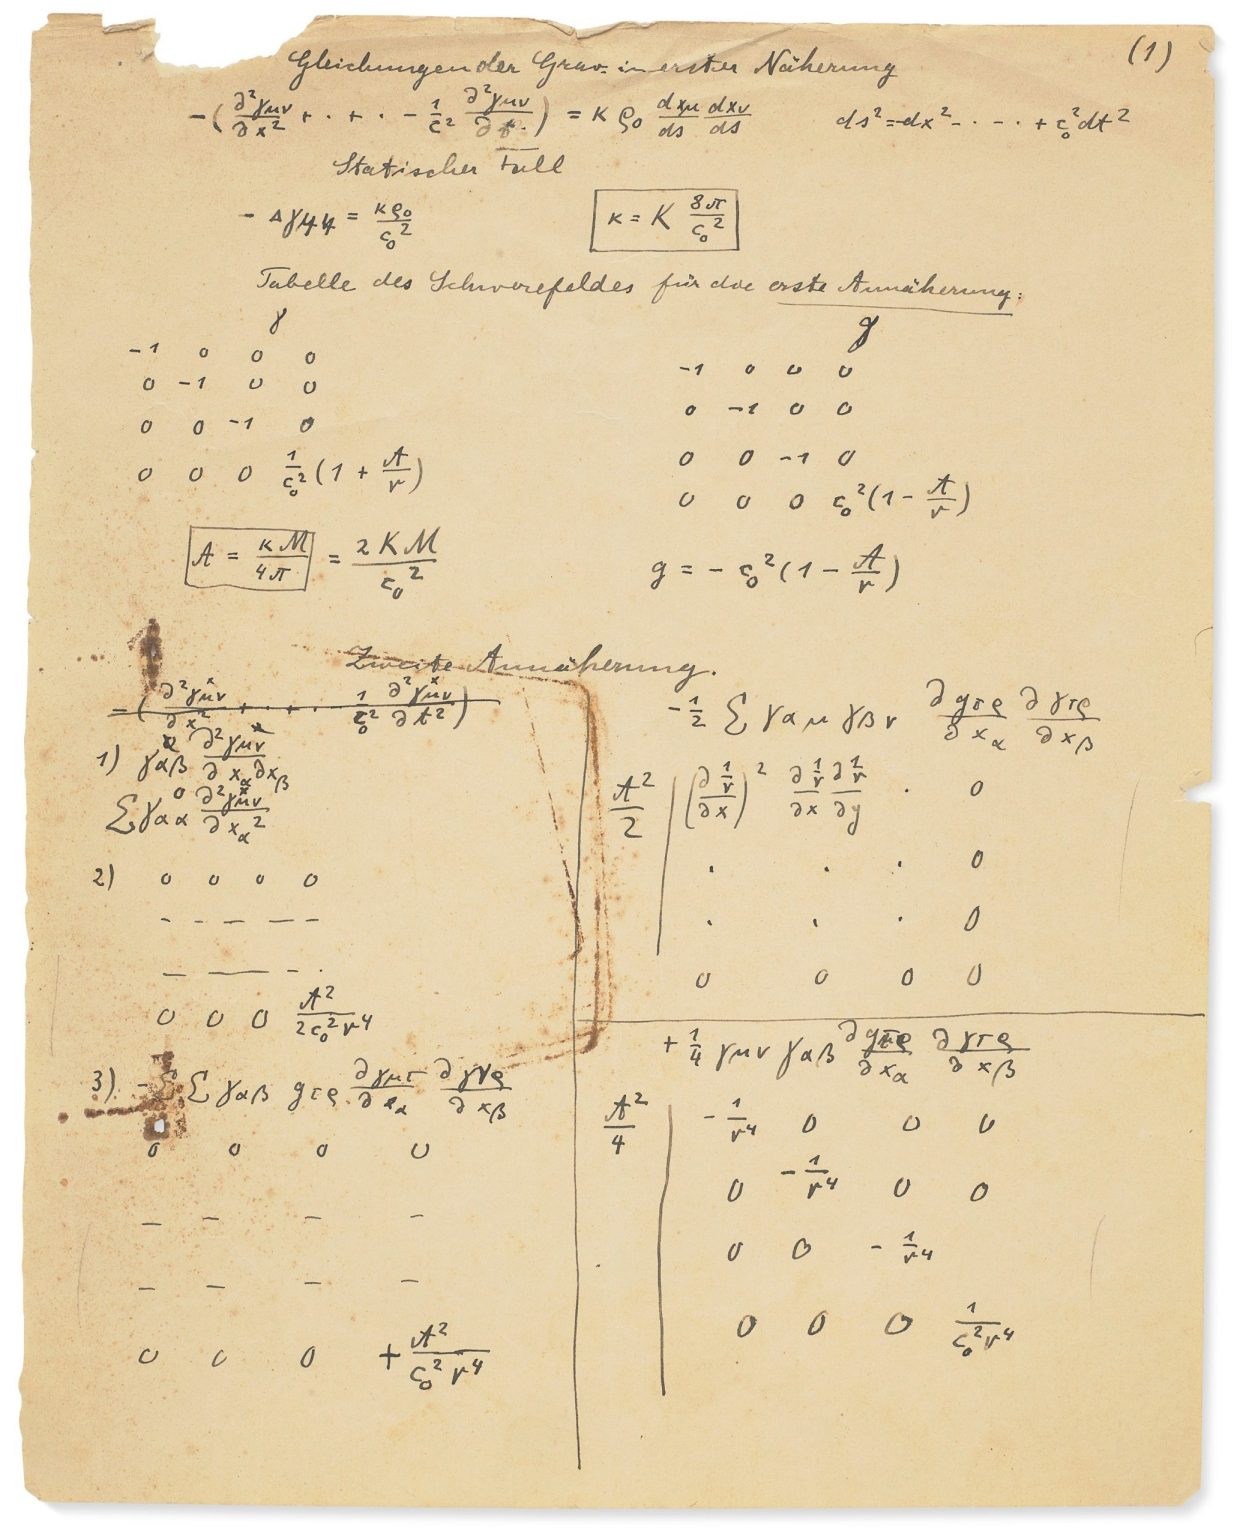 (1)
Gleichungen der Grav. in erster Näherung
−(∂²γμν/∂x² + · + · − 1/c² ∂²γμν/∂t²) = κ ρ₀ dxμ/ds dxν/ds    ds² = −dx² − · − · + c₀²dt²
Statischer Fall
− Δγ₄₄ = κρ₀/c₀²    κ = K 8π/c₀²
Tabelle des Schwerefeldes für die erste Annäherung:
γ    g
−1 0 0 0    −1 0 0 0
0 −1 0 0    0 −1 0 0
0 0 −1 0    0 0 −1 0
0 0 0 1/c₀²(1 + A/r)    0 0 0 c₀²(1 − A/r)
A = κM/4π = 2KM/c₀²    g = − c₀²(1 − A/r)
Zweite Annäherung.
−(∂²γ×μν/∂x² + · + · 1/c₀² ∂²γ×μν/∂t²)
1) γαβ ∂²γμν/∂xα∂xβ
Σ γ⁰αα ∂²γ×μν/∂xα²
2) 0 0 0 0
- - - - -
- - - .
0 0 0 A²/2c₀²r⁴
3) − Σ γαβ gτρ ∂γμτ/∂xα ∂γνρ/∂xβ
0 0 0 0
- - - -
- - - -
0 0 0 + A²/c₀²r⁴
−1/2 Σ γαμ γβν ∂gτρ/∂xα ∂γτρ/∂xβ
A²/2 | (∂1/r/∂x)² ∂1/r/∂x ∂1/r/∂y · 0
· · · 0
· · · 0
0 0 0 0
+ 1/4 γμν γαβ ∂gτρ/∂xα ∂γτρ/∂xβ
A²/4 | −1/r⁴ 0 0 0
0 −1/r⁴ 0 0
0 0 −1/r⁴
0 0 0 1/c₀²r⁴